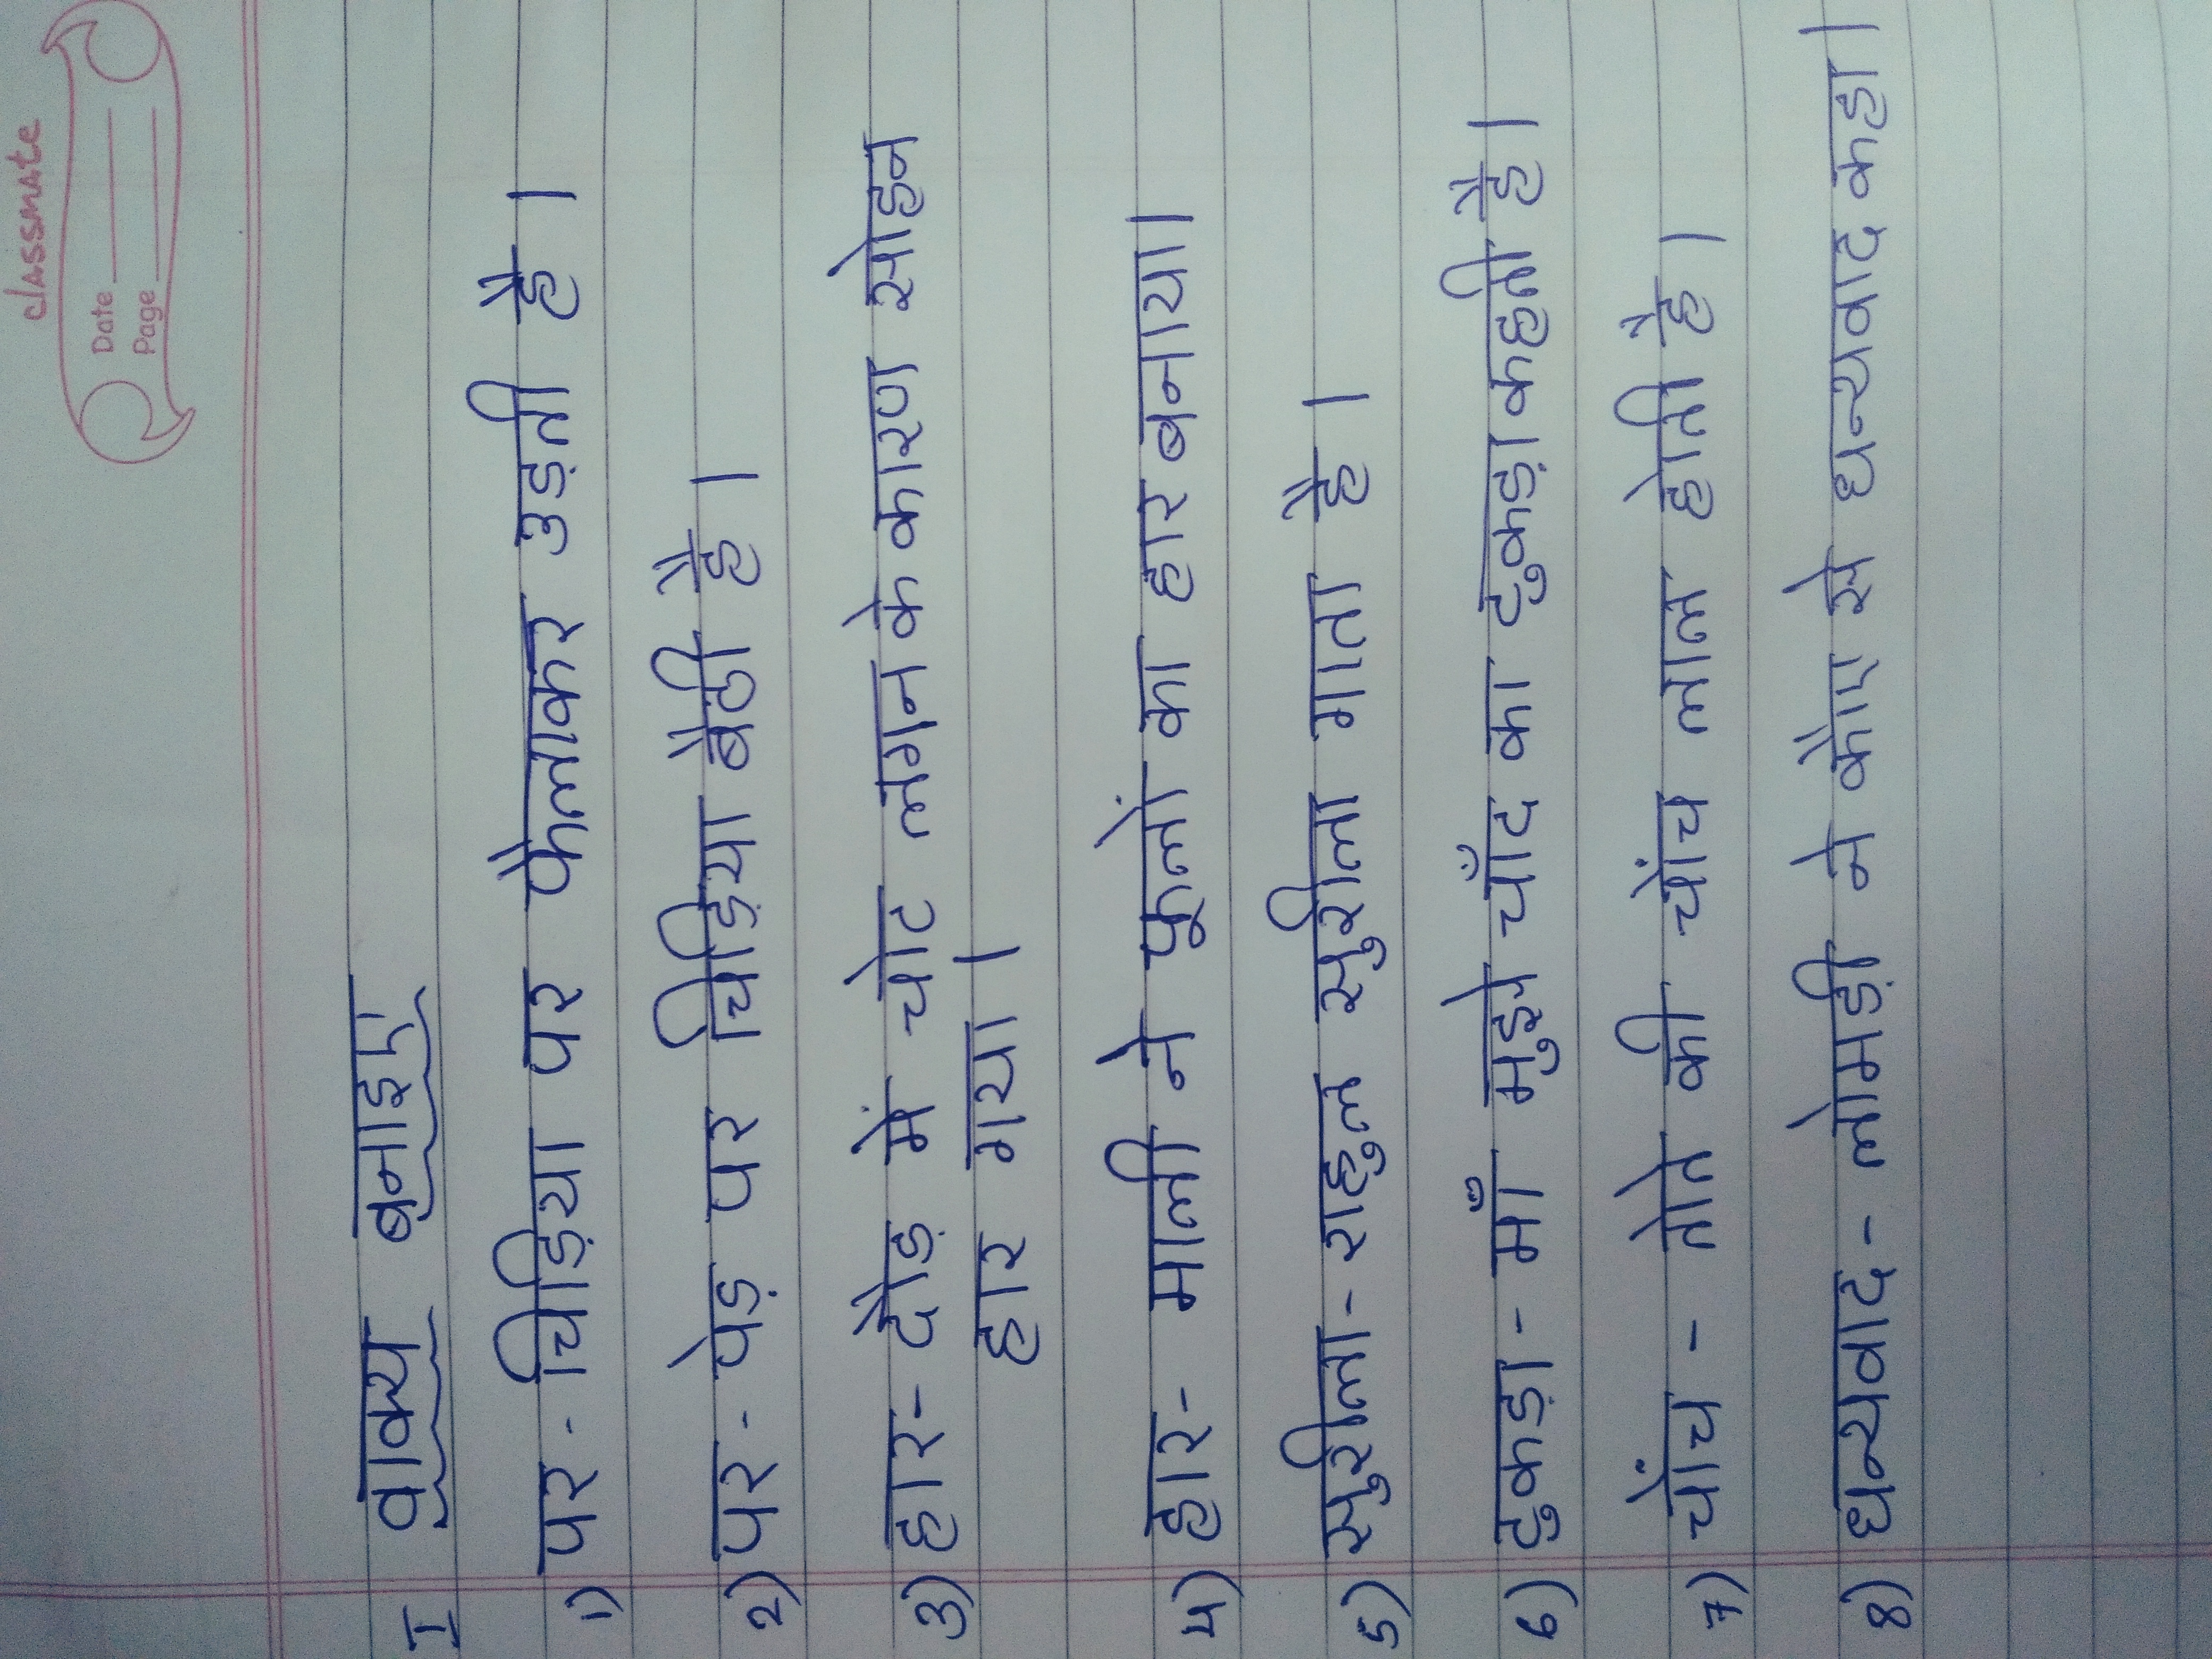 classmate
Date
Page
I वाक्य बनाइए
1) पर - चिड़िया पर फैलाकर उड़ती है।
2) पर - पेड़ पर चिड़िया बैठी है।
3) हार - दौड़ में चोट लगने के कारण सोहन
हार गया।
4) हार - माली ने फूलों का हार बनाया।
5) सुरीला - राहुल सुरीला गाता है।
6) टुकड़ा - माँ मुझे चाँद का टुकड़ा कहती है।
7) चोंच - तोते की चोंच लाल होती है।
8) धन्यवाद - लोमड़ी ने कौए से धन्यवाद कहा।